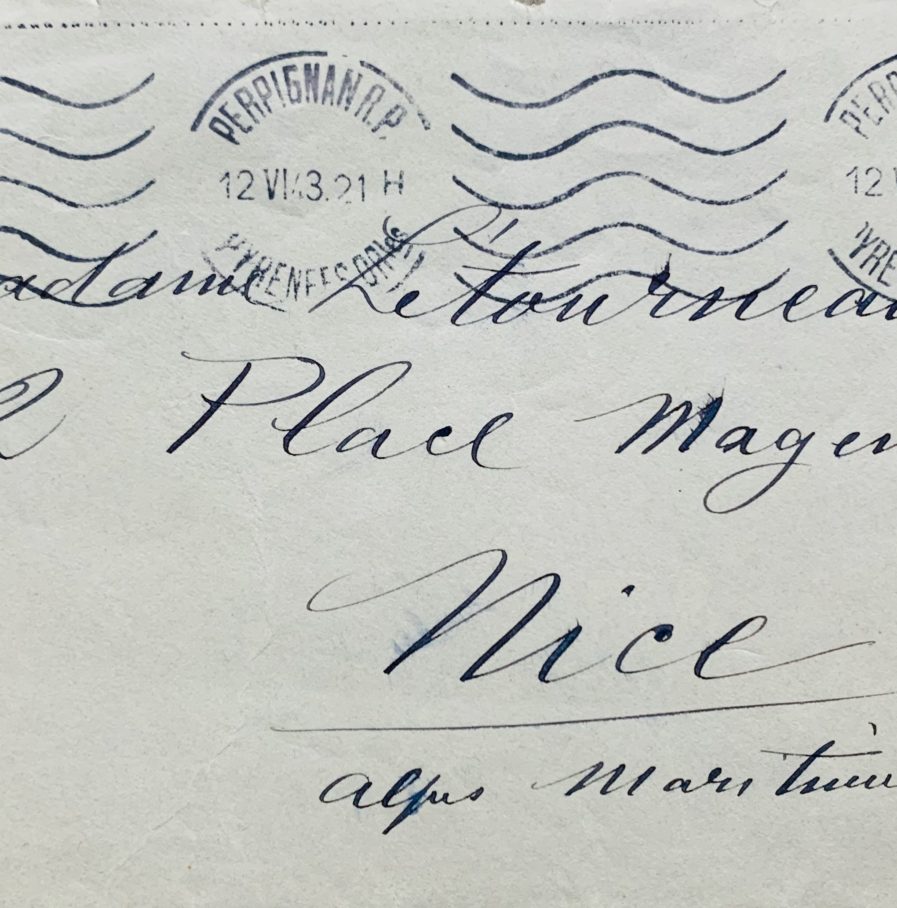 PERPIGNAN R.P.
12 VI 43. 21 H
PYRENEES ORles
adame Letourneau
2 Place Magen
Nice
alpes Marit